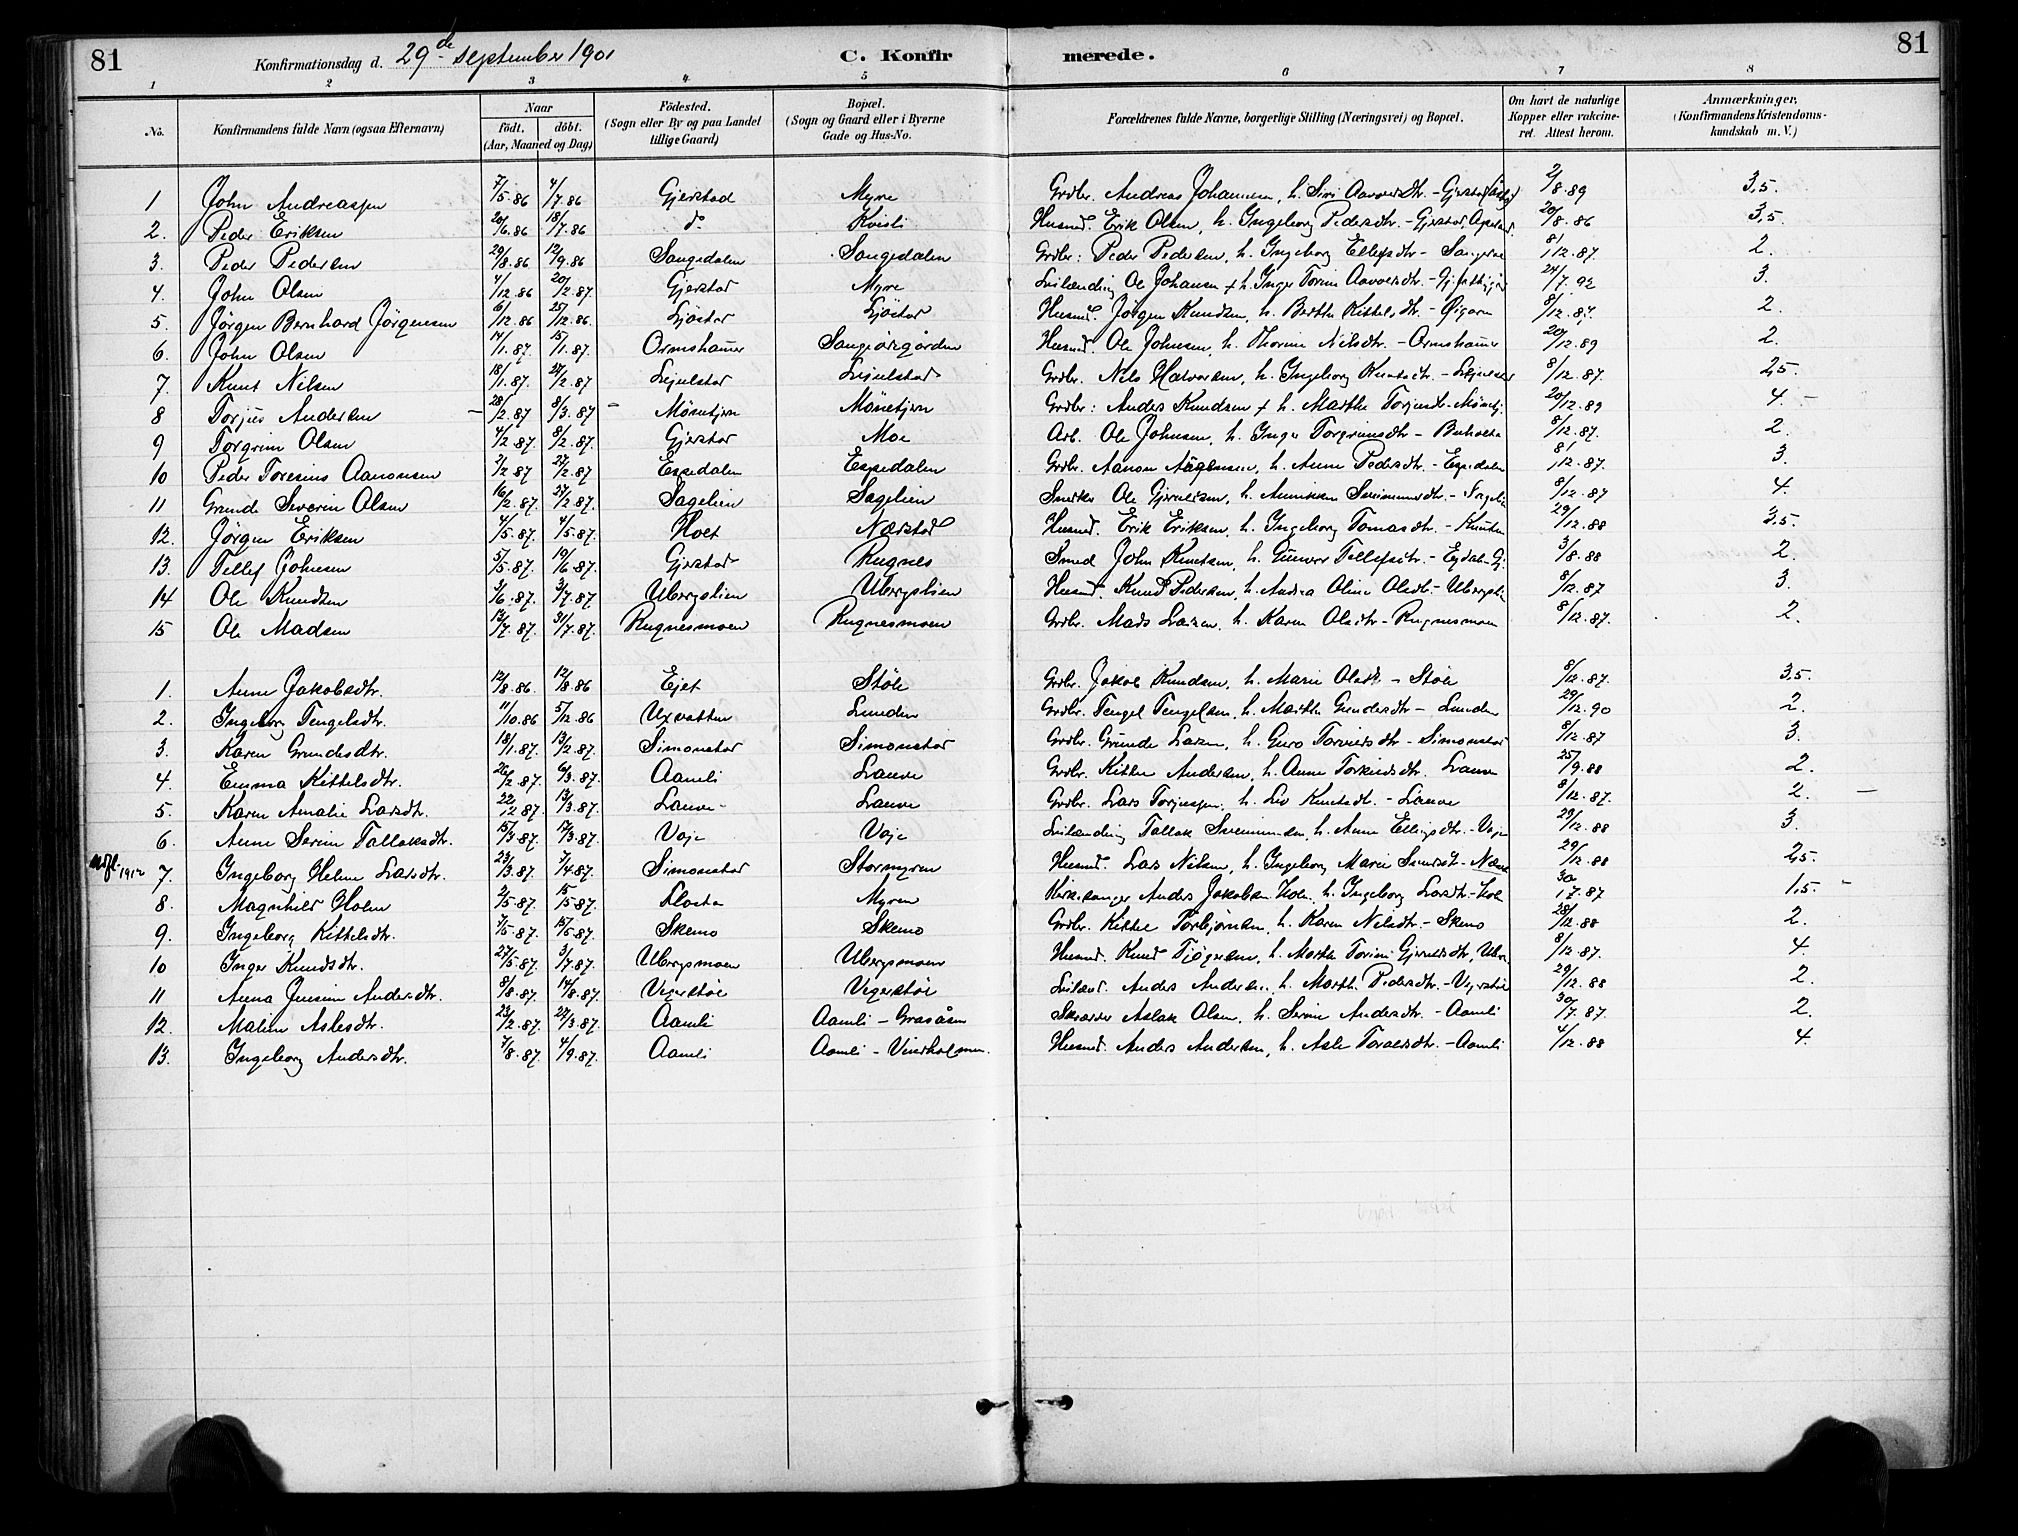 81 Konfirmationsdag d. 29de September 1901 C. Konfir merede. 81
1 2 3 4 5 6 7 8
No. Konfirmandens fulde Navn (ogsaa Efternavn) Naar født, døbt. (Aar, Maaned og Dag) Fødested. (Sogn eller By og paa Landet tillige Gaard) Bopæl. (Sogn og Gaard eller i Byerne Gade og Hus-No. Forældrenes fulde Navne, borgerlige Stilling (Næringsvei) og Bopæl. Om havt de naturlige Kopper eller vakcineret. Attest herom. Anmærkninger, (Konfirmandens Kristendomskundskab m. V.)
1 John Andreassen 7/5.86 4/7.86 Gjerstad Myre Grdbr. Andreas Johannsen, h. Siri Aavoldsdtr. - Gjerstad 2/8.89 3,5.
2. Peder Eriksen 20/6.86 18/7.86 do Kvisti Husmd. Erik Olsen, h. Ingeborg Pedersdtr. - Gjerstad, 20/8.86 3,5.
3. Peder Pedersen 29/8.86 12/9.86 Sangedalen Sangedalen Grdbr: Peder Pedersen, h. Ingeborg Ellefsdtr - 8/12.87. 2.
4. John Olsen 4/12.86 20/2.87. Gjerstad Myre Leilænding Ole Johansen + h. Inger Torine Aavoldsdtr. - 24/7.92 3.
5. Jørgen Bernhard Jørgensen 6/12.86 25/12.86. Ljøstad Ljøstad Husmd. Jørgen Knudsen, h. Berthe Kittelsdtr - Øigarn 8/12.87. 2.
6. John Olsen 14/1.87. 15/1.87. Ormshauer Husmd. Ole Johnsen, h. Thorine Nielsdtr. - Ormshauer 20/12.89 2.
7. Knut Nilsen 18/1.87. 27/2.87 Grdbr. Nils Halvorsen, h. Ingeborg Knutsdtr. - 8/12.87. 2,5.
8 Torjus Andersen - 28/2.87 8/3.87 - Mønetjern Mønetjern Grdbr: Anders Knudsen + h. Marthe - Mønetj. 20/12.89 4. -
9 Torgrim Olsen 4/2.87. 8/2.87. Gjerstad Moe Arb. Ole Johnsen, h. Inger Torgrimsdtr - 8/12.87. 2.
10 Peder Toresius Aanonsen 2/2.87 27/2.87 Espedalen Espedalen Grdbr. Aanon Aagensen, h. Anne Pedersdtr. - Espedalen 8/12.87. 3.
11 Grunde Severin Olsen 16/2.87. 27/2.87 Sagelien Sagelien Snedker Ole Gjeruldsen, h. Annikken - Sagelien 8/12.87 4.
12. Jørgen Eriksen 4/5.87. 4/5.87. Holt Nærstad Husmd. Erik Eriksen, h. Ingeborg Tomasdtr. - 29/12.88 3,5.
13. Tellef Johnsen 5/5.87. 19/6.87. Gjerstad Rugnes Smed John Knutsen, h. Gunvor Tellefsdtr. - 3/8.88 2.
14 Ole Knudsen 3/6.87. 3/7.87 Ubergslien Ubergslien Husmd. Knud Pedersen, h. Andrea Oline Olsdtr. - Ubergslien 8/12.87 3.
15 Ole Madsen 13/7.87. 31/7.87. Rugnesmoen Rugnesmoen Grdbr. Mads Larsen, h. Karen Olsdtr - Rugnesmoen 8/12.87. 2.
1. Anne Jakobsdtr. 12/8.86. 12/8.86 Ejet Støle Grdbr. Jakob Knudsen, h. Marie Olsdtr. - Støle 8/12.87. 3,5.
2. Ingeborg Tengelsdtr. 11/10.86 5/12.86 Uxvatten Lunden Grdbr. Tengel Tengelsen, h. Marthe Gundersdtr - Lunden 29/12.90 2.
3. Karen Grundesdtr. 18/1.87. 13/2.87. Simonstad Simonstad Grdbr. Grunde Larsen, h. Guro - Simonstad 8/12.87 3.
4 Emma Kittelsdtr. 26/2.87. 6/3.87. Aamli Lauve Grdbr. Kittel Andersen, h. Anne Torkildsdtr. Lauve 25/9.88 2.
5. Karen Amalie Larsdtr. 22/12.87. 13/3.87. Lauve - Lauve Grdbr. Lars Torjussen, h. Liv Knutsdtr. - Lauve 8/12.87. 2. -
6. Anne Serine Tallaksdtr. 15/3.87. 17/3.87. Voje Voje Leilænding Tallak h. Anne Ellingsdtr. - Voje 29/12.88 3.
1912 7. Ingeborg Helene Larsdtr. 23/3.87. 7/4.87. Simonstad Stormyren Husmd. Lars Nilsen, h. Ingeborg Marie - 29/12.88 2,5.
8. Magnhild Holm 2/5.87. 15/5.87. Flosta Myren Kirkesanger Anders Jakobsen Holm, h. Ingeborg Larsdtr. - 30/7.87 1,5. -
9. Ingeborg Kittelsdtr. 7/5.87. 15/5.87. Skemo Skemo Grdbr. Kittel Torbjørnsen, h. Karen Nilsdtr. - Skemo 28/12.88 2.
10 Inger Knudsdtr. 27/5.87. 3/7.87. Ubergsmoen Ubergsmoen Husmd. Knud h. Marthe Torine Gjeruldsdtr., 8/12.87. 4.
11 Anna Jensine Andersdtr. 8/8.87. 14/8.87. Vegerstøl Vegerstøl Leilænd. Anders Andersen, h. Marthe Pedersdtr. - Vegerstøl 29/12.88 2.
12. Malene Aslesdtr. 23/2.87. 22/3.87. Aamli Aamli - Grasåsen Skrædder Aslak Olsen, h. Serine Andersdtr. - Aamli 30/7.87. 2.
13. Ingeborg Andersdtr. 7/8.87. 4/9.87. Aamli Aamli - Husmd. Anders Andersen, h. Asle Toraldsdtr. - Aamli 4/12.88 4.